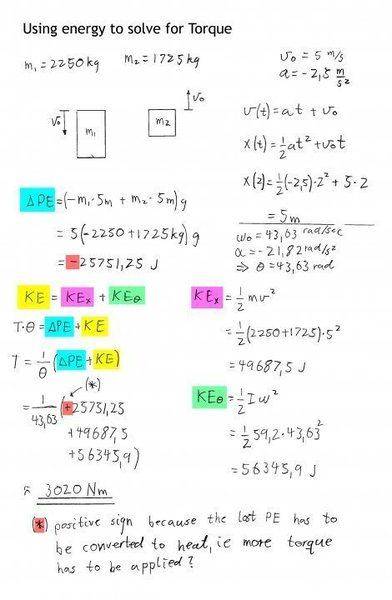 Using energy to solve for Torque
m₁ = 2250 kg   m₂ = 1725 kg
v₀ = 5 m/s
a = -2,5 m/s²
v₀ m₁
m₂ v₀
v(t) = at + v₀
x(t) = ½at² + v₀t
x(2) = ½(-2,5)·2² + 5·2
= 5m
ω₀ = 43,63 rad/sec
α = -21,82 rad/s²
⇒ θ = 43,63 rad
ΔPE = (-m₁·5m + m₂·5m)g
= 5(-2250+1725kg)g
= -25751,25 J
KE = KEₓ + KEθ
T·θ = ΔPE + KE
T = 1/θ (ΔPE + KE)
(*)
= 1/43,63 (+25751,25
+49687,5
+56345,9)
≈ 3020 Nm
KEₓ = ½mv²
= ½(2250+1725)·5²
= 49687,5 J
KEθ = ½Iω²
= ½ 59,2·43,63²
= 56345,9 J
(*) positive sign because the lost PE has to
be converted to heat, ie more torque
has to be applied?